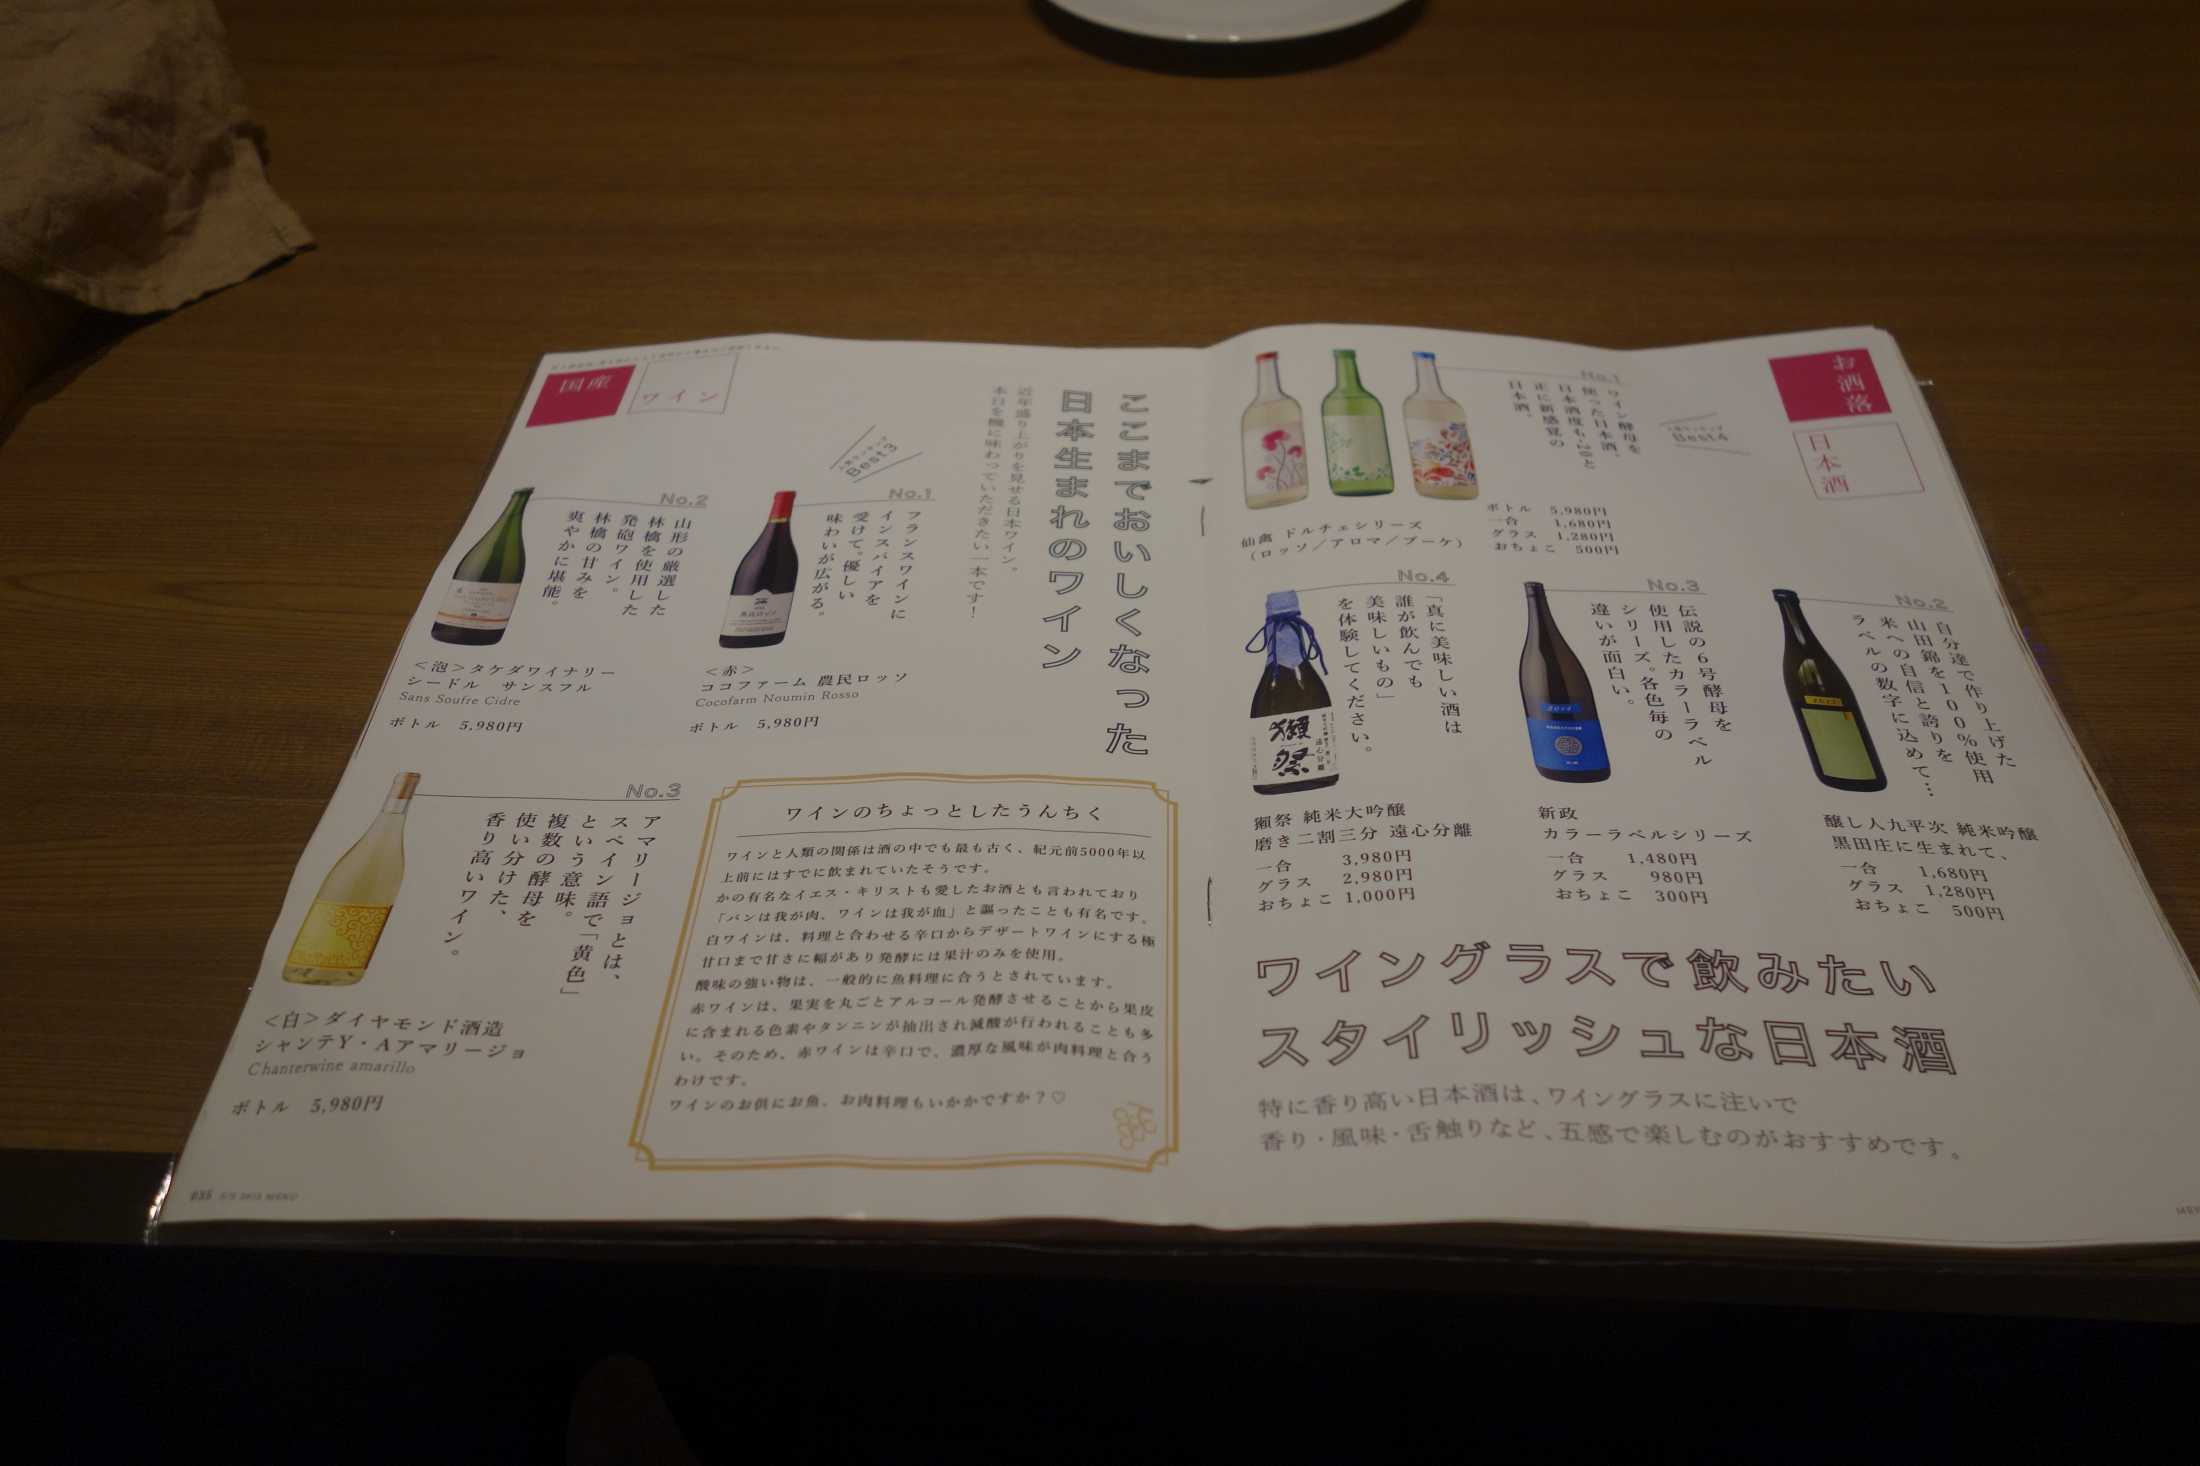 国産
ワイン
ここまでおいしくなった
日本生まれのワイン
近年盛り上がりを見せる日本ワイン。
本日を機に味わっていただきたい一本です！
Best3
No.1
フランスワインに
インスパイアを
受けて。優しい
味わいが広がる。
＜赤＞
ココファーム 農民ロッソ
Cocofarm Noumin Rosso
ボトル 5,980円
No.2
山形の厳選した
林檎を使用した
発砲ワイン。
林檎の甘みを
爽やかに堪能。
＜泡＞タケダワイナリー
シードル サンスフル
Sans Soufre Cidre
ボトル 5,980円
No.3
アマリージョとは、
スペイン語で「黄色」
という意味。
複数の酵母を
使い分けた、
香り高いワイン。
＜白＞ダイヤモンド酒造
シャンテY・Aアマリージョ
Chanterwine amarillo
ボトル 5,980円
ワインのちょっとしたうんちく
ワインと人類の関係は酒の中でも最も古く、紀元前5000年以
上前にはすでに飲まれていたそうです。
かの有名なイエス・キリストも愛したお酒とも言われており
「パンは我が肉、ワインは我が血」と謳ったことも有名です。
白ワインは、料理と合わせる辛口からデザートワインにする極
甘口まで甘さに幅があり発酵には果汁のみを使用。
酸味の強い物は、一般的に魚料理に合うとされています。
赤ワインは、果実を丸ごとアルコール発酵させることから果皮
に含まれる色素やタンニンが抽出され減酸が行われることも多
い。そのため、赤ワインは辛口で、濃厚な風味が肉料理と合う
わけです。
ワインのお供にお魚、お肉料理もいかかですか？♡
035
お洒落
日本酒
Best4
No.1
ワイン酵母を
使った日本酒、
正に新感覚の
日本酒。
仙禽 ドルチェシリーズ
（ロッソ／アロマ／ブーケ）
ボトル 5,980円
一合 1,680円
グラス 1,280円
おちょこ 500円
No.2
自分達で作り上げた
山田錦を100%使用
米への自信と誇りを
ラベルの数字に込めて…
醸し人九平次 純米吟醸
黒田庄に生まれて、
一合 1,680円
グラス 1,280円
おちょこ 500円
No.3
伝説の6号酵母を
使用したカラーラベル
シリーズ。各色毎の
違いが面白い。
新政
カラーラベルシリーズ
一合 1,480円
グラス 980円
おちょこ 300円
No.4
「真に美味しい酒は
誰が飲んでも
美味しいもの」
を体験してください。
獺祭
遠心分離
獺祭 純米大吟醸
磨き二割三分 遠心分離
一合 3,980円
グラス 2,980円
おちょこ 1,000円
ワイングラスで飲みたい
スタイリッシュな日本酒
特に香り高い日本酒は、ワイングラスに注いで
香り・風味・舌触りなど、五感で楽しむのがおすすめです。